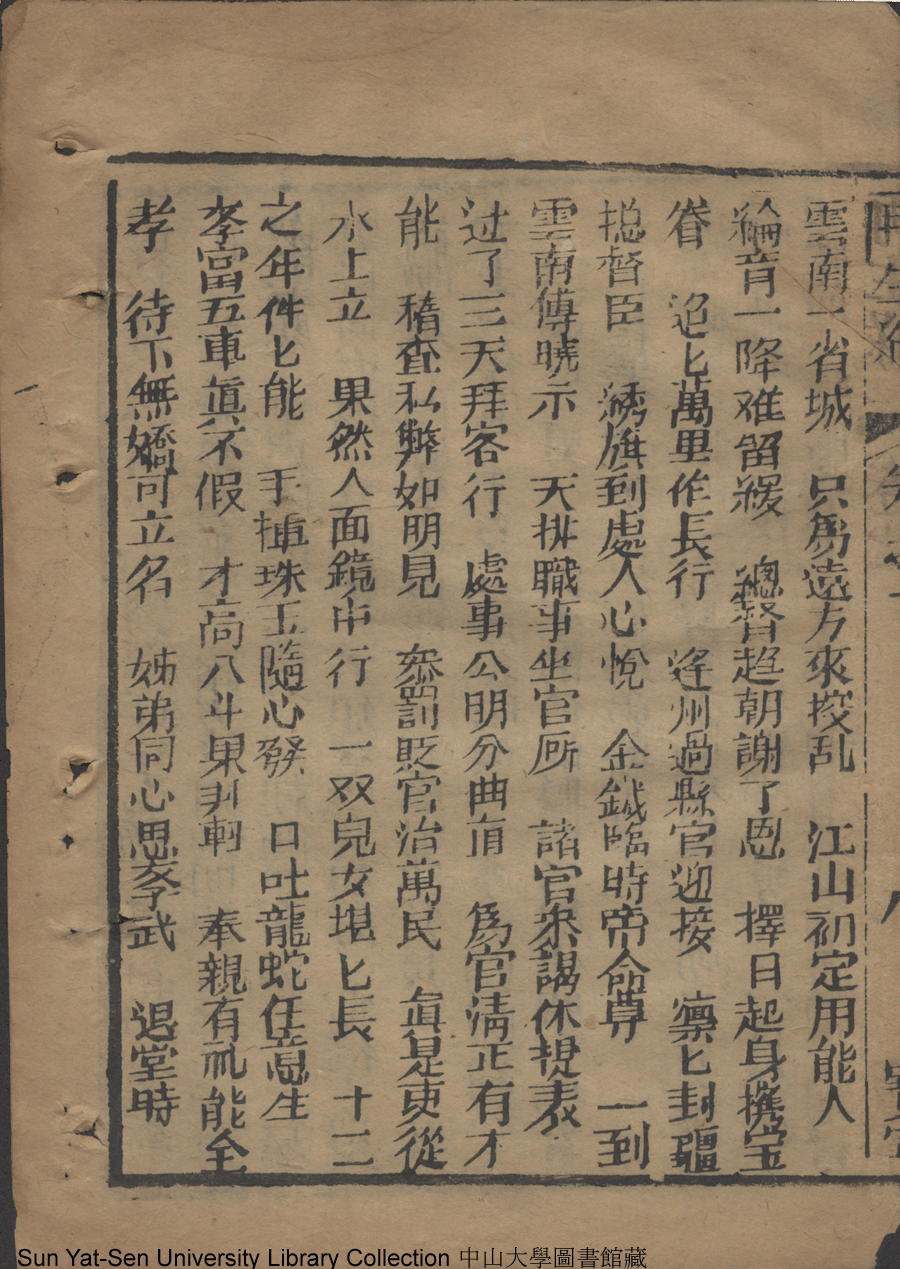 雲南一省城　只爲遠方來授乱　江山初定用能人
綸音一降难留緩　總督趋朝謝了恩　擇日起身攜宝
眷　迢匕萬里作長行　逄州過縣官迎接　凛匕封疆
捴督臣　綉旗到處人心悅　金鉞臨時帝命尊　一到
雲南傅曉示　天排職事坐官所　諸官来謁休提表
过了三天拜客行　處事公明分曲直　爲官清正有才
能　稽査私弊如明見　叅罰貶官治萬民　眞是吏從
水上立　果然人面鏡中行　一双兒女堪匕長　十二
之年件匕能　手揮珠玉隨心發　口吐龍蛇任意生
孝富五車眞不假　才高八斗果非輕　奉親有礼能全
孝　待下無嬌可立名　姊弟同心思孝武　退堂時
Sun Yat-Sen University Library Collection 中山大學圖書館藏